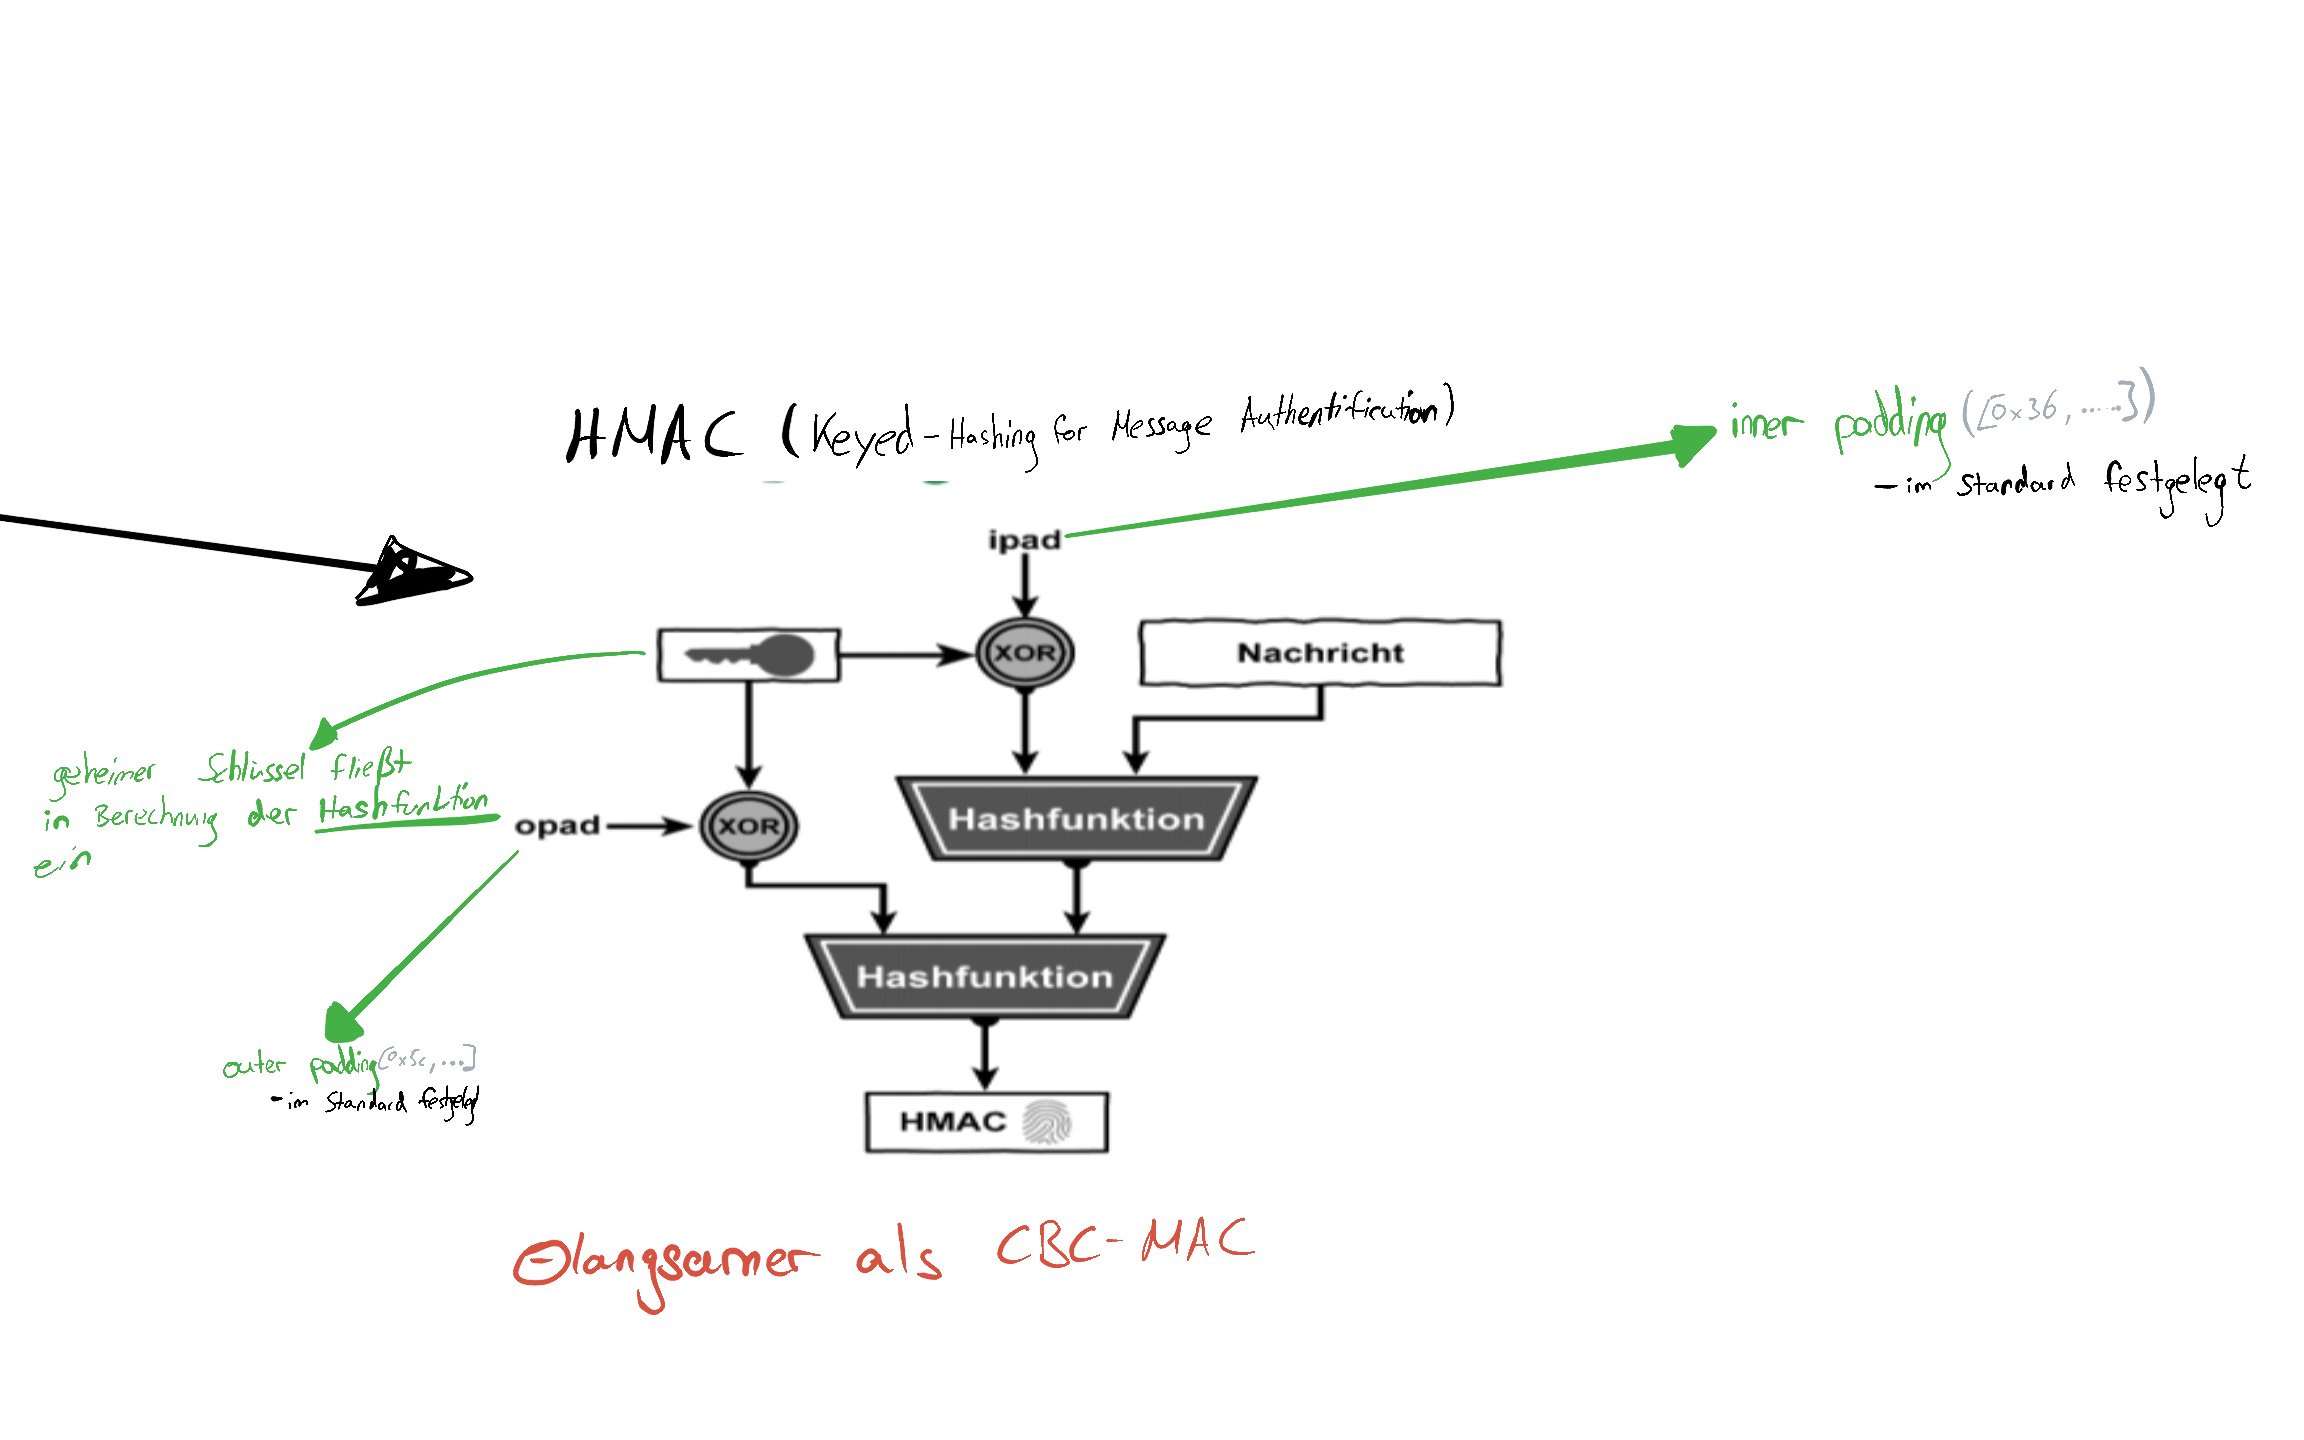 HMAC (Keyed-Hashing for Message Authentification)
inner padding ([0x36, .....])
- im Standard festgelegt
ipad
XOR
Nachricht
geheimer Schlüssel fließt
in Berechnung der Hashfunktion
ein
opad
XOR
Hashfunktion
Hashfunktion
outer padding [0x5c, ...]
- im Standard festgelegt
HMAC
⊖ langsamer als CBC-MAC